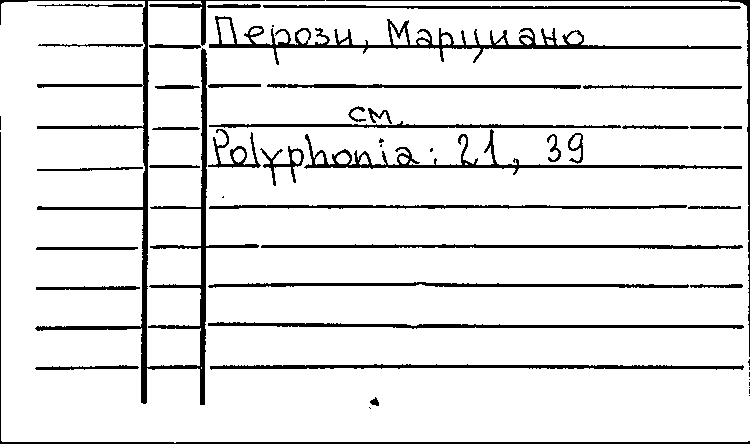 Перози, Марциано
см.
Polyphonia: 21, 39